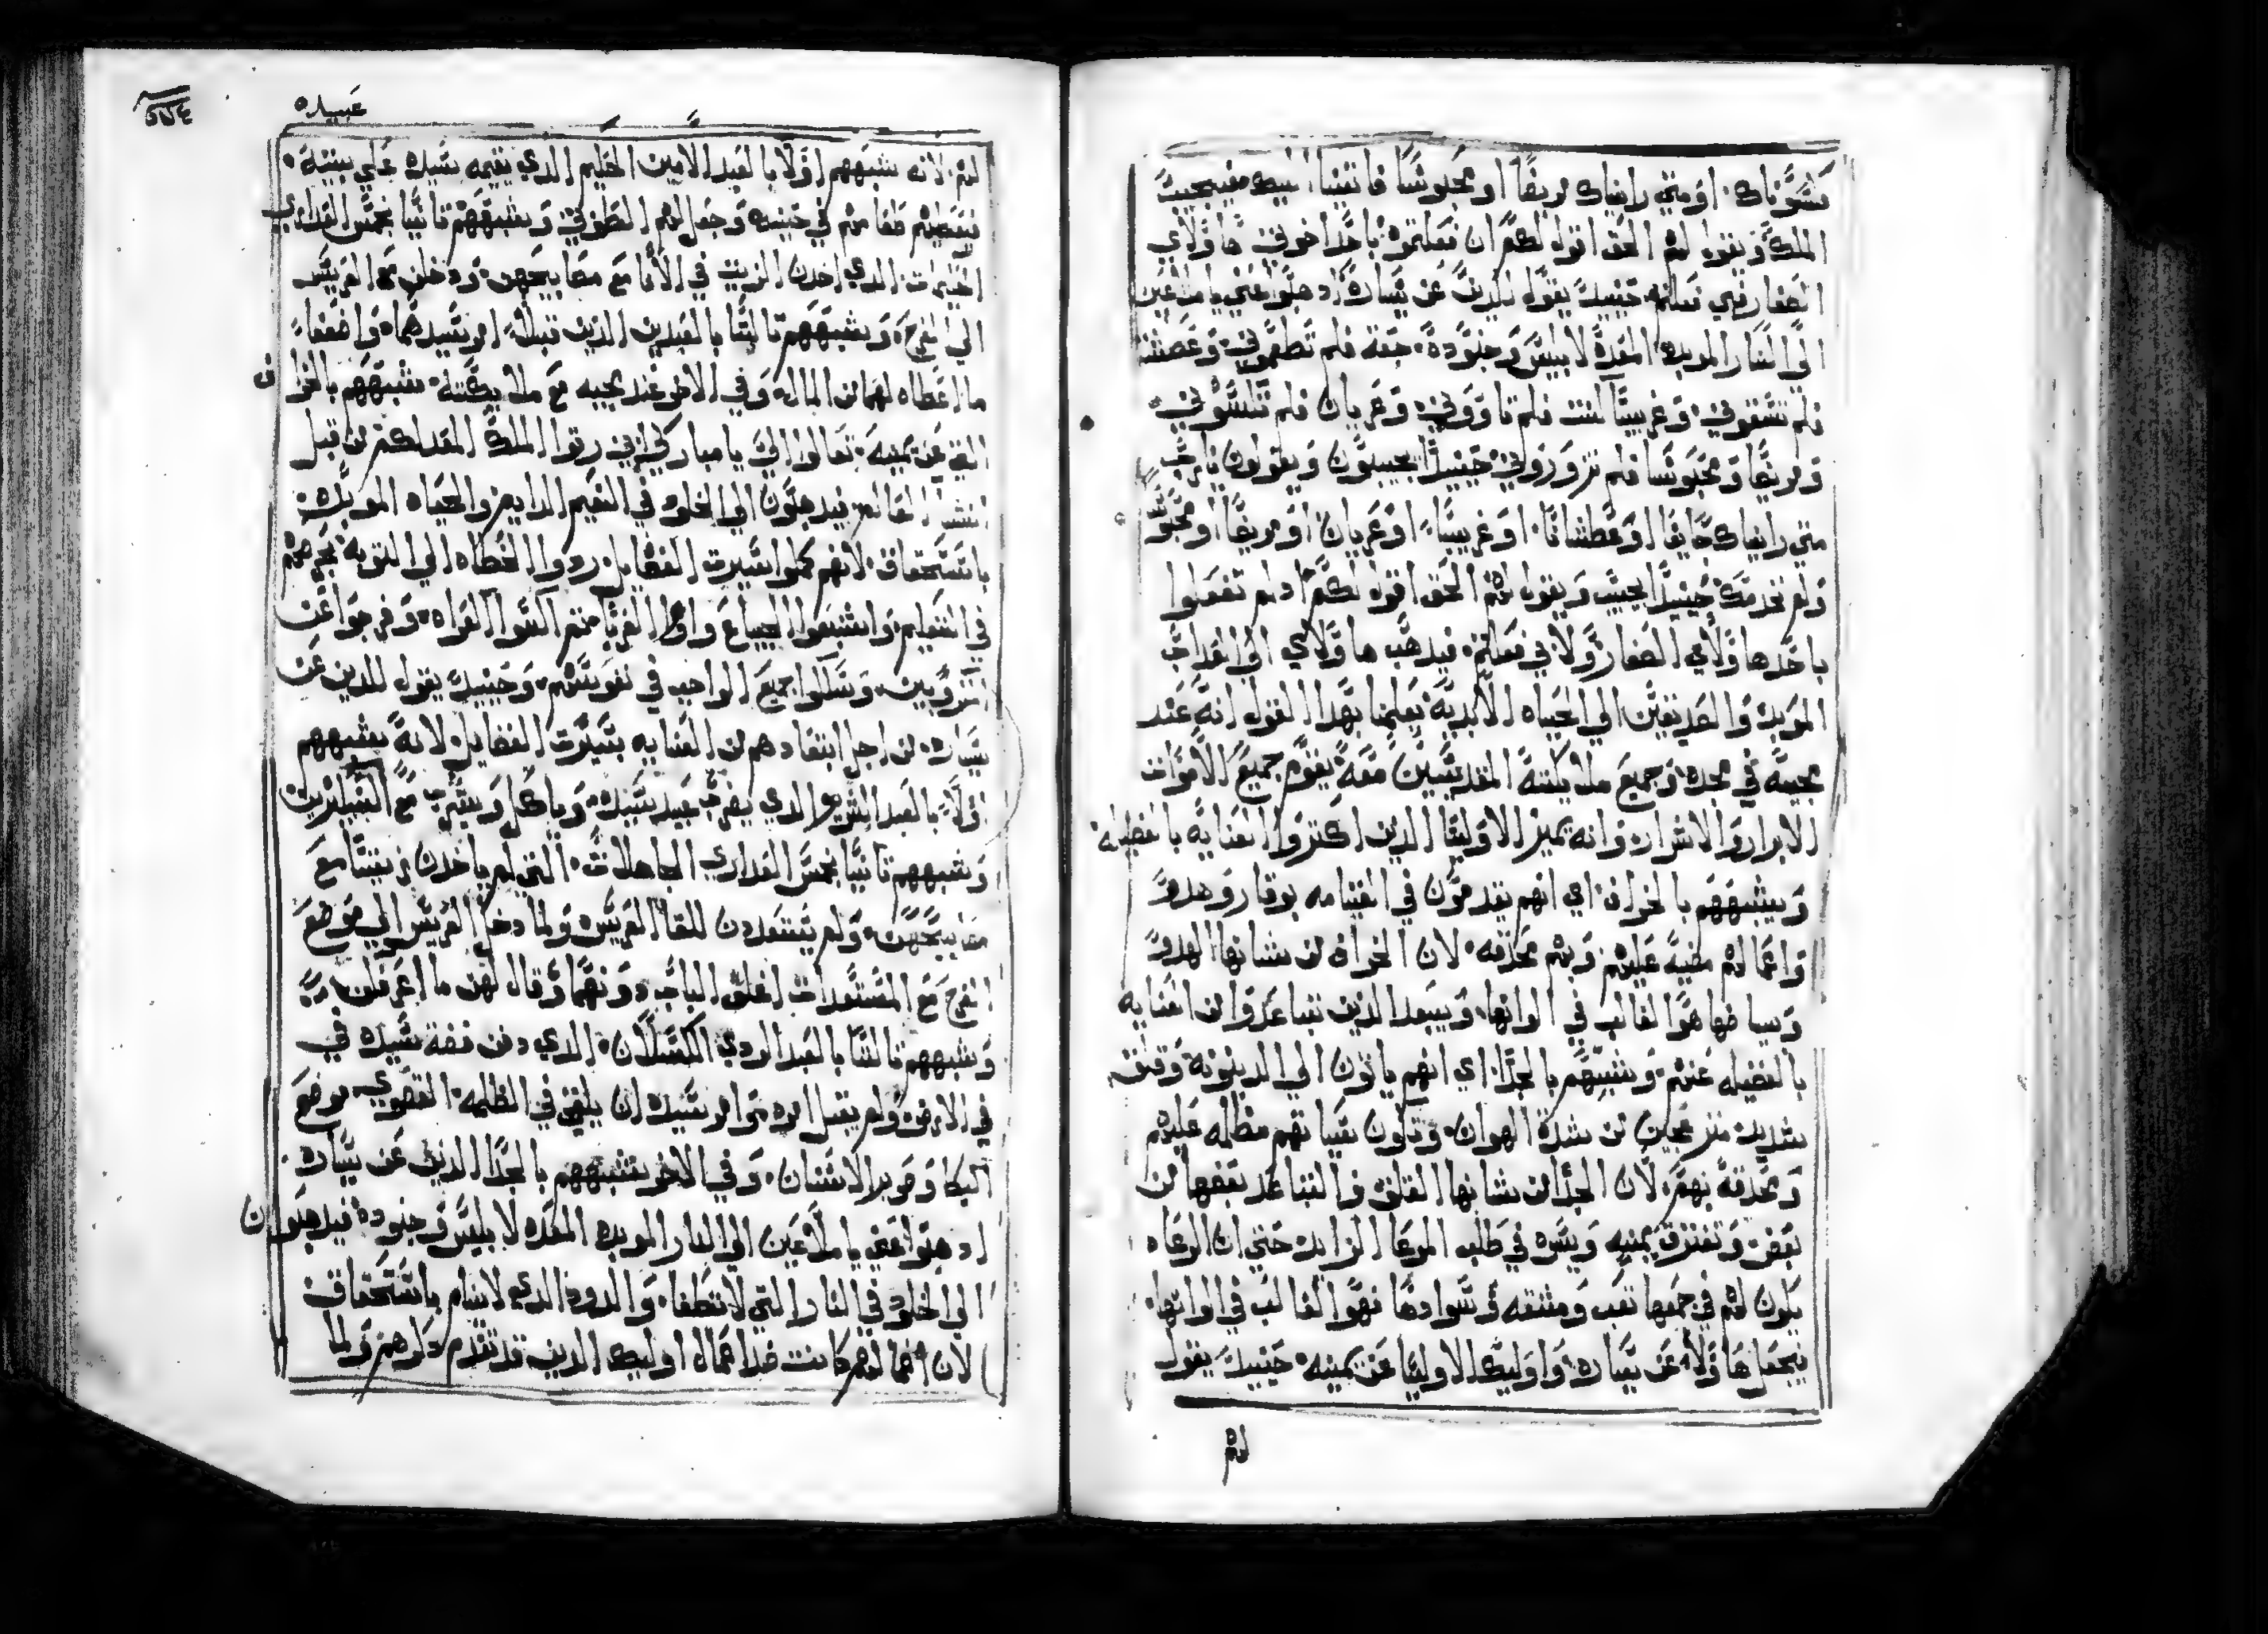 فكسوناك. او متي رايناك مريضًا او محبوسًا فاتينا اليك فيجيب
الملك ويقول لهم الحق اقول لكم ان فعلتموه باحد اخوتي هاولاي
الصغار فبي فعلتم حينيد يقول للدين عن يساره ادهبوا عني يا ملاعين
الي النار الموبده المعده لابليس وجنوده. جعت فلم تطعموني وعطشت
فلم تسقوني وغريبًا كنت فلم تاووني. وعريان فلم تلبسوني
ومريضًا ومحبوسًا فلم تزوروني. حينيد يجيبون ويقولون يا رب
متي رايناك جايعًا او عطشانًا. او غريبًا. او عريان او مريضًا او محبوسًا
ولم نخدمك حينيد يجيب ويقول لهم الحق اقول لكم اد لم تفعلوا
باحد هاولاي الصغار ولا بي فعلتم. فيدهب هاولاي الي العداب
الموبد والصديقين الي الحياه الابديه يعلمنا بهدا القول انه عند
مجيه في مجده وجميع ملايكته المقديسين معه يقوم جميع الاموات
الابرار والاشرار وانه يميز الاوليا الدين اكتروا العنايه بالفضيله
ويشبههم بالخراف اي انهم يقدمون في القيامه بوقار وهدو
واعمالهم مضيه عليهم وبهم محدقه. لان الخراف من شانها الهدو
وبياضها هو الغالب في الوانها. ويبعد الدين تباعدوا من العنايه
بالفضيله عنهم. ويشبههم بالجدا. اي انهم ياتون الي الدينونه وقلق
شديد منزعجين من شدة الهوان. وتكون سياتهم مظلمه عليهم
ومحدقة بهم. لان الجدا من شانها القلق والتباعد بعضها من
بعض وتفترق يمنه ويسره في طلب المرعا الزايد حتي ان الرعاه
يكون لهم في جمعها تعب ومشقه وسوادها فهو الغالب في الوانها.
فيجعل هاولا عن يساره. واوليك الاوليا عن يمينه. حينيد يقول
لهم
عبيده
لهم. لانه شبههم اولا بالعبد الامين الحكيم الدي يقيمه سيده علي بيته.
فيعطيهم طعامهم في حينه وجعل لهم الطوبي ويشبههم تانيًا بخمس العداري
الحكيمات. الدي اخدن الزيت في الانا مع مصابيحهن. ودخلن مع العريس
الي الفرح. ويشبههم تالتًا بالعبدين الدين قبلا امر سيدهما. واضعفا
ما اعطاه لهما من المال. وفي الاخر عند مجيه مع ملايكته. شبههم بالخراف
التي عن يمينه. تعالوا الي يا مباركي ابي رتوا الملك المعد لكم من قبل
انشا العالم. فيدهبون الي الخلود في النعيم الدايم والحياه الموبده.
باستحقاق. لانهم كملوا سيرت الفضايل. ردوا الخطاه الي التوبه بحرصهم
في التعليم. واشبعوا الجياع واووا الغربا. تم اكسوا العراه. وفرجوا عن
المكروبين. وسلكوا جميع الواجب في نفوسهم. وحينيد يقول للدين عن
يساره. من اجل ابتعادهم من العنايه بسيرت الفضايل. لانه يشبههم
اولا. بالعبد الشرير الدي يضرب عبيد سيده. وياكل ويشرب مع السكيرين
ويشبههم تانيًا بخمس العداري الجاهلات. التي لم ياخدن زيتًا مع
مصابيحهن. ولم يستعدون للقا العريس ولما دخل العريس الي موضع
الفرح مع المستعدات اغلق الباب دونهما. وقال لهن ما اعرفكن
ويشبههم تالتًا بالعبد الردي الكسلان. الدي دفن فضة سيده في
في الارض ولم يقبل امر سيده ان يلقي في الظلمه القصوي موضع
البكا وصرير الاسنان. وفي الاخر يشبههم بالجدا الدين عن يساره.
ادهبوا عني يا ملاعين الي النار الموبده المعده لابليس وجنوده. فيدهبون
الي الخلود في النار التي لا تطفا. والدود الدي لا ينام باستحقاق
لان اعمالهم كانت ضد اعمال اوليك الدين قد تقدم دكرهم ولما